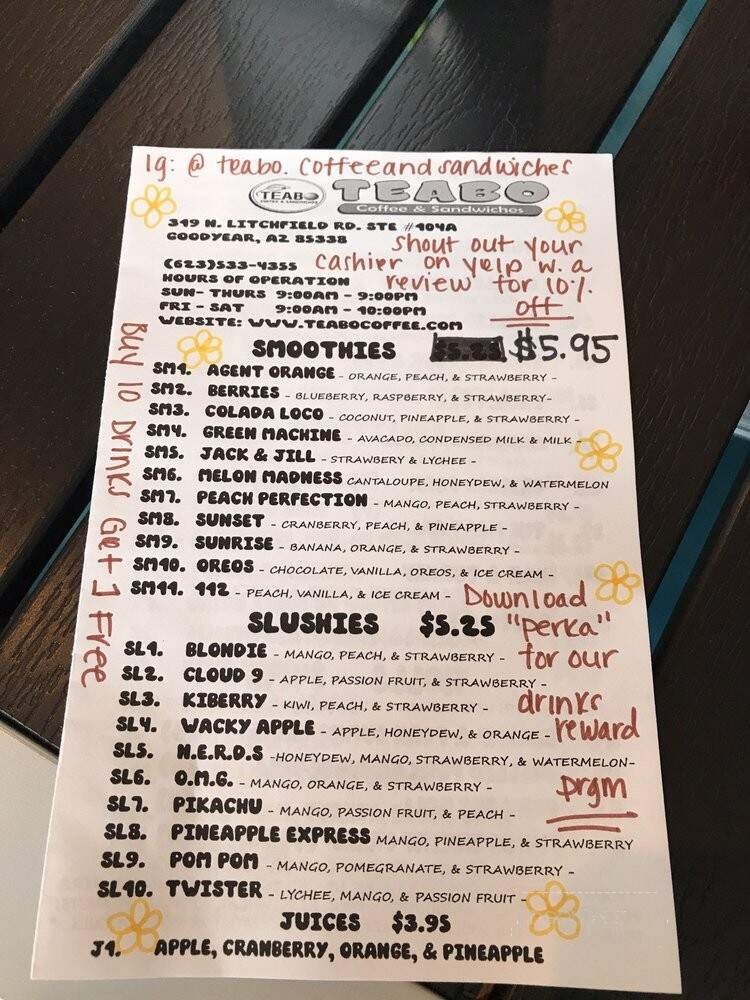 Ig: @ teabo.coffeeandsandwiches
TEABO
TEABO
Coffee & Sandwiches
319 N. LITCHFIELD RD. STE #104A
GOODYEAR, AZ 85338
shout out your
cashier on yelp w. a
review for 10%
off
(623)533-4355
HOURS OF OPERATION
SUN- THURS 9:00AM - 9:00PM
FRI - SAT 9:00AM - 10:00PM
WEBSITE: WWW.TEABOCOFFEE.COM
Buy 10 Drinks Get 1 Free
SMOOTHIES $5.25 $5.95
SM1. AGENT ORANGE - ORANGE, PEACH, & STRAWBERRY -
SM2. BERRIES - BLUEBERRY, RASPBERRY, & STRAWBERRY-
SM3. COLADA LOCO - COCONUT, PINEAPPLE, & STRAWBERRY -
SM4. GREEN MACHINE - AVACADO, CONDENSED MILK & MILK -
SM5. JACK & JILL - STRAWBERY & LYCHEE -
SM6. MELON MADNESS CANTALOUPE, HONEYDEW, & WATERMELON
SM7. PEACH PERFECTION - MANGO, PEACH, STRAWBERRY -
SM8. SUNSET - CRANBERRY, PEACH, & PINEAPPLE -
SM9. SUNRISE - BANANA, ORANGE, & STRAWBERRY -
SM10. OREOS - CHOCOLATE, VANILLA, OREOS, & ICE CREAM -
SM11. 112 - PEACH, VANILLA, & ICE CREAM -
Download
"perka"
for our
drinks
reward
prgm
SLUSHIES $5.25
SL1. BLONDIE - MANGO, PEACH, & STRAWBERRY -
SL2. CLOUD 9 - APPLE, PASSION FRUIT, & STRAWBERRY -
SL3. KIBERRY - KIWI, PEACH, & STRAWBERRY -
SL4. WACKY APPLE - APPLE, HONEYDEW, & ORANGE -
SL5. N.E.R.D.S -HONEYDEW, MANGO, STRAWBERRY, & WATERMELON-
SL6. O.M.G. - MANGO, ORANGE, & STRAWBERRY -
SL7. PIKACHU - MANGO, PASSION FRUIT, & PEACH -
SL8. PINEAPPLE EXPRESS MANGO, PINEAPPLE, & STRAWBERRY
SL9. POM POM - MANGO, POMEGRANATE, & STRAWBERRY -
SL10. TWISTER - LYCHEE, MANGO, & PASSION FRUIT -
JUICES $3.95
J1. APPLE, CRANBERRY, ORANGE, & PINEAPPLE